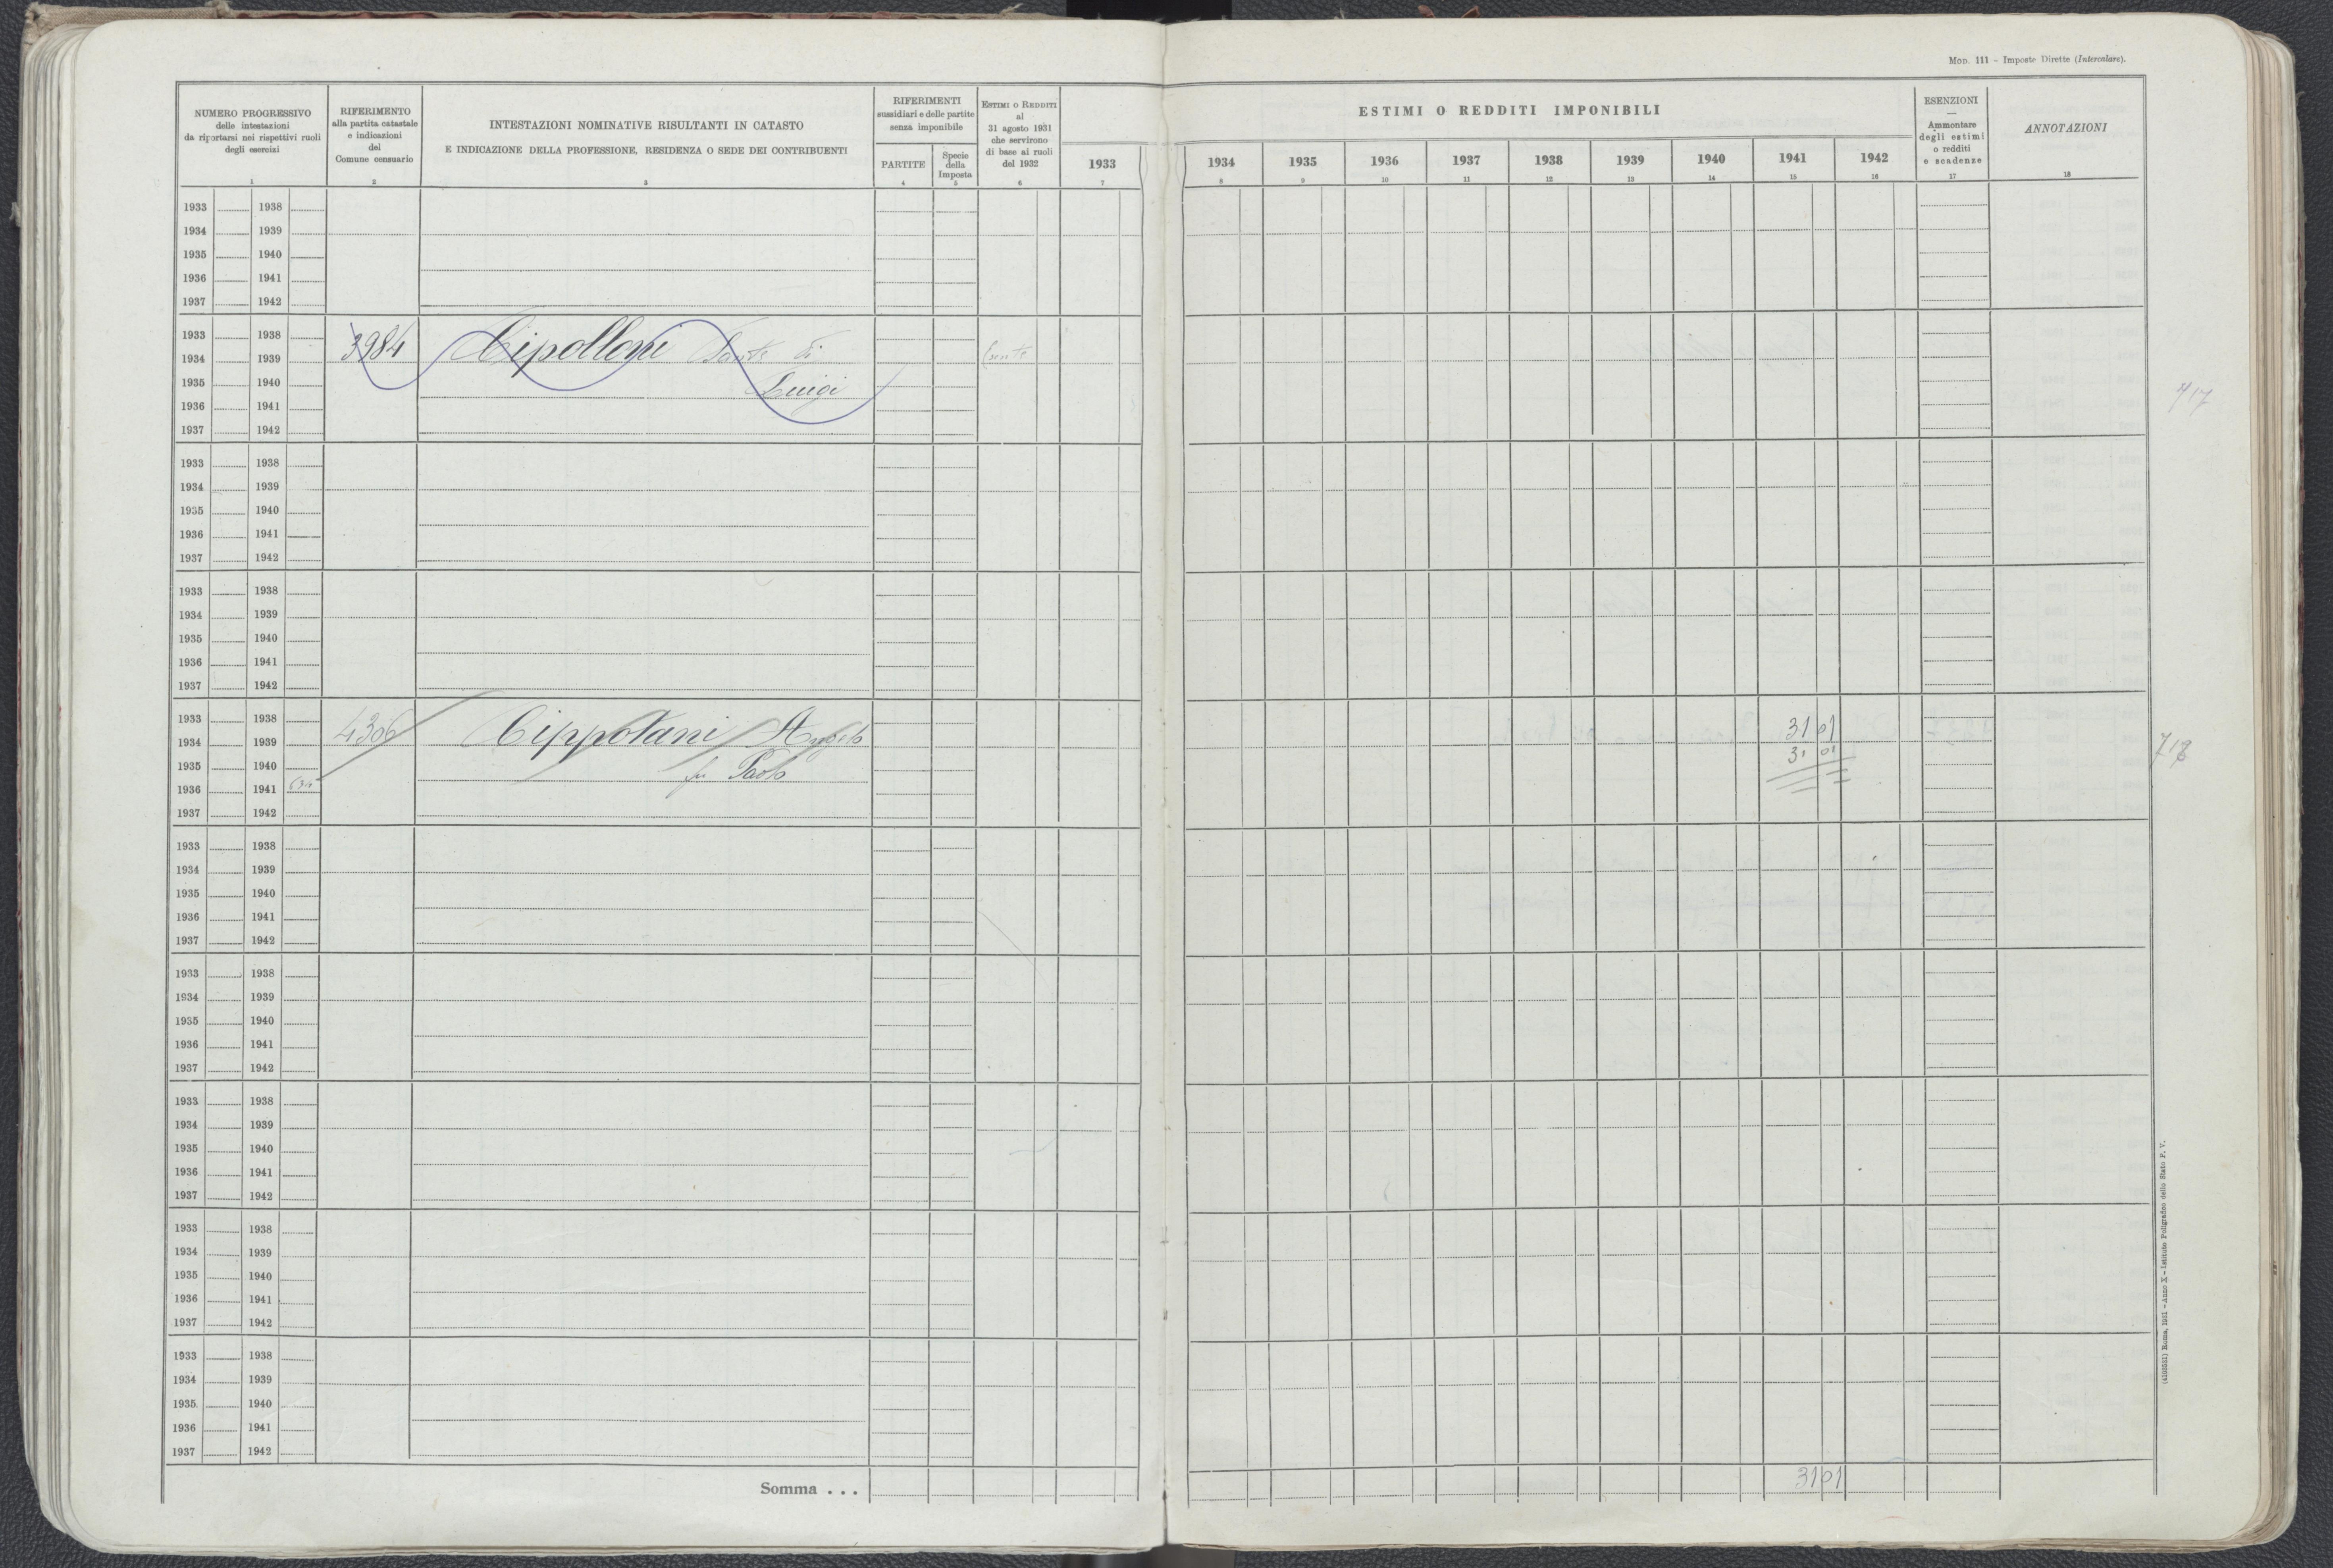 MOD. 111 – Imposte Dirette (Intercalare).
NUMERO PROGRESSIVO
delle intestazioni
da riportarsi nei rispettivi ruoli
degli esercizi
1
RIFERIMENTO
alla partita catastale
e indicazioni
del
Comune censuario
2
INTESTAZIONI NOMINATIVE RISULTANTI IN CATASTO
E INDICAZIONE DELLA PROFESSIONE, RESIDENZA O SEDE DEI CONTRIBUENTI
3
RIFERIMENTI
sussidiari e delle partite
senza imponibile
PARTITE
4
Specie
della
Imposta
5
ESTIMI O REDDITI
al
31 agosto 1931
che servirono
di base ai ruoli
del 1932
6
ESTIMI O REDDITI IMPONIBILI
1933 1934 1935 1936 1937 1938 1939 1940 1941 1942
7 8 9 10 11 12 13 14 15 16
ESENZIONI
—
Ammontare
degli estimi
o redditi
e scadenze
17
ANNOTAZIONI
18
1933 1938
1934 1939
1935 1940
1936 1941
1937 1942
1933 1938
1934 1939 3984 Cipolloni Sante di
1935 1940 Luigi
1936 1941 717
1937 1942
1933 1938
1934 1939
1935 1940
1936 1941
1937 1942
1933 1938
1934 1939
1935 1940
1936 1941
1937 1942
1933 1938 4306 Cippotani Angelo 31 01
1934 1939 31 01
1935 1940 fu Paolo 718
1936 1941
1937 1942
1933 1938
1934 1939
1935 1940
1936 1941
1937 1942
1933 1938
1934 1939
1935 1940
1936 1941
1937 1942
1933 1938
1934 1939
1935 1940
1936 1941
1937 1942
1933 1938
1934 1939
1935 1940
1936 1941
1937 1942
1933 1938
1934 1939
1935 1940
1936 1941
1937 1942
Somma . . . 31 01
(4103551) Roma, 1931 – Anno X – Istituto Poligrafico dello Stato P. V.